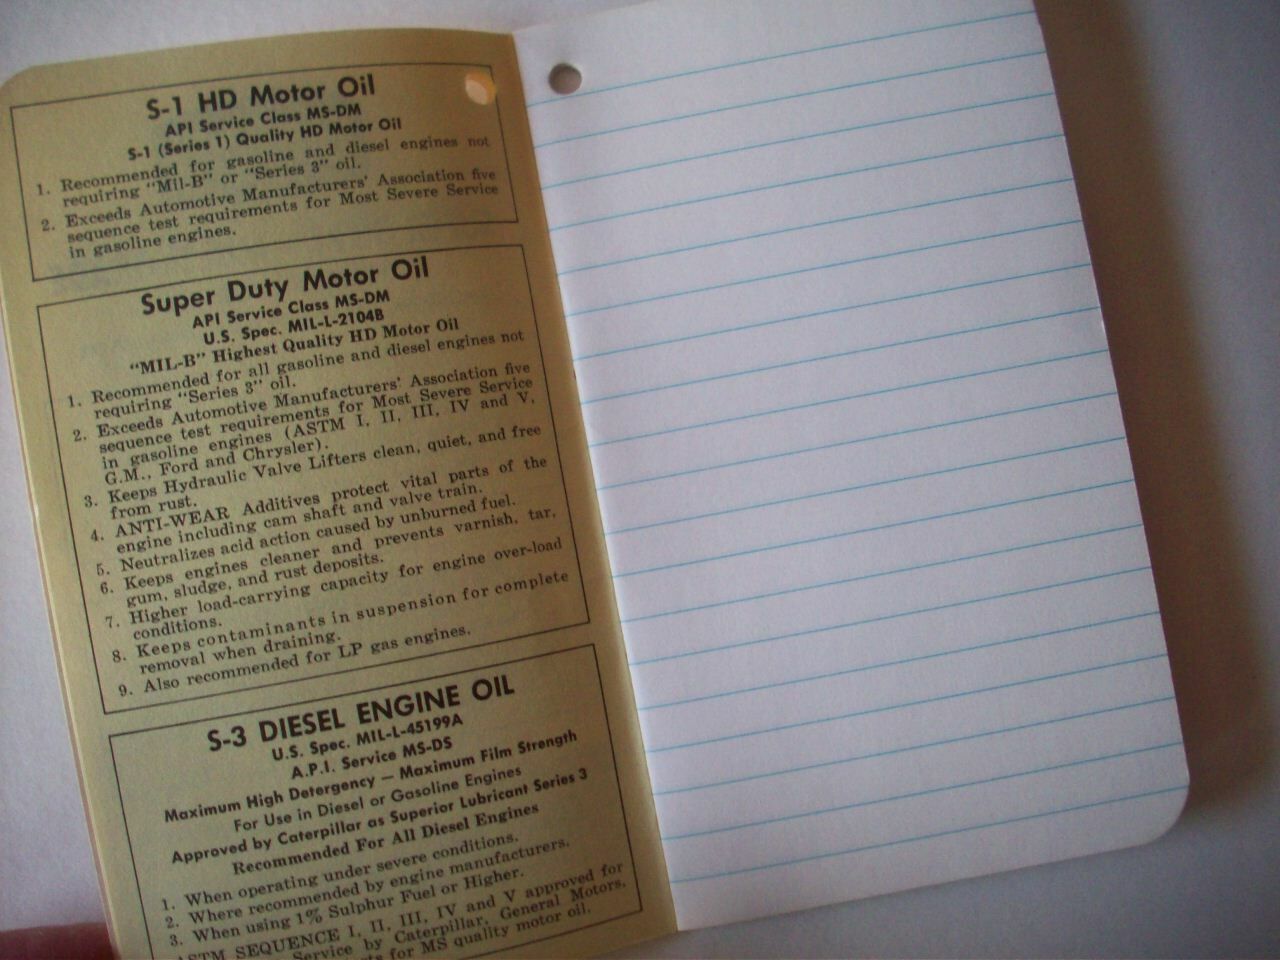 S-1 HD Motor Oil
API Service Class MS-DM
S-1 (Series 1) Quality HD Motor Oil
1. Recommended for gasoline and diesel engines not
requiring "Mil-B" or "Series 3" oil.
2. Exceeds Automotive Manufacturers' Association five
sequence test requirements for Most Severe Service
in gasoline engines.
Super Duty Motor Oil
API Service Class MS-DM
U.S. Spec. MIL-L-2104B
"MIL-B" Highest Quality HD Motor Oil
1. Recommended for all gasoline and diesel engines not
requiring "Series 3" oil.
2. Exceeds Automotive Manufacturers' Association five
sequence test requirements for Most Severe Service
in gasoline engines (ASTM I, II, III, IV and V,
G.M., Ford and Chrysler).
3. Keeps Hydraulic Valve Lifters clean, quiet, and free
from rust.
4. ANTI-WEAR Additives protect vital parts of the
engine including cam shaft and valve train.
5. Neutralizes acid action caused by unburned fuel.
6. Keeps engines cleaner and prevents varnish, tar,
gum, sludge, and rust deposits.
7. Higher load-carrying capacity for engine over-load
conditions.
8. Keeps contaminants in suspension for complete
removal when draining.
9. Also recommended for LP gas engines.
S-3 DIESEL ENGINE OIL
U.S. Spec. MIL-L-45199A
A.P.I. Service MS-DS
Maximum High Detergency — Maximum Film Strength
For Use in Diesel or Gasoline Engines
Approved by Caterpillar as Superior Lubricant Series 3
Recommended For All Diesel Engines
1. When operating under severe conditions.
2. Where recommended by engine manufacturers.
3. When using 1% Sulphur Fuel or Higher.
ASTM SEQUENCE I, II, III, IV and V approved for
Service by Caterpillar, General Motors,
for MS quality motor oil.